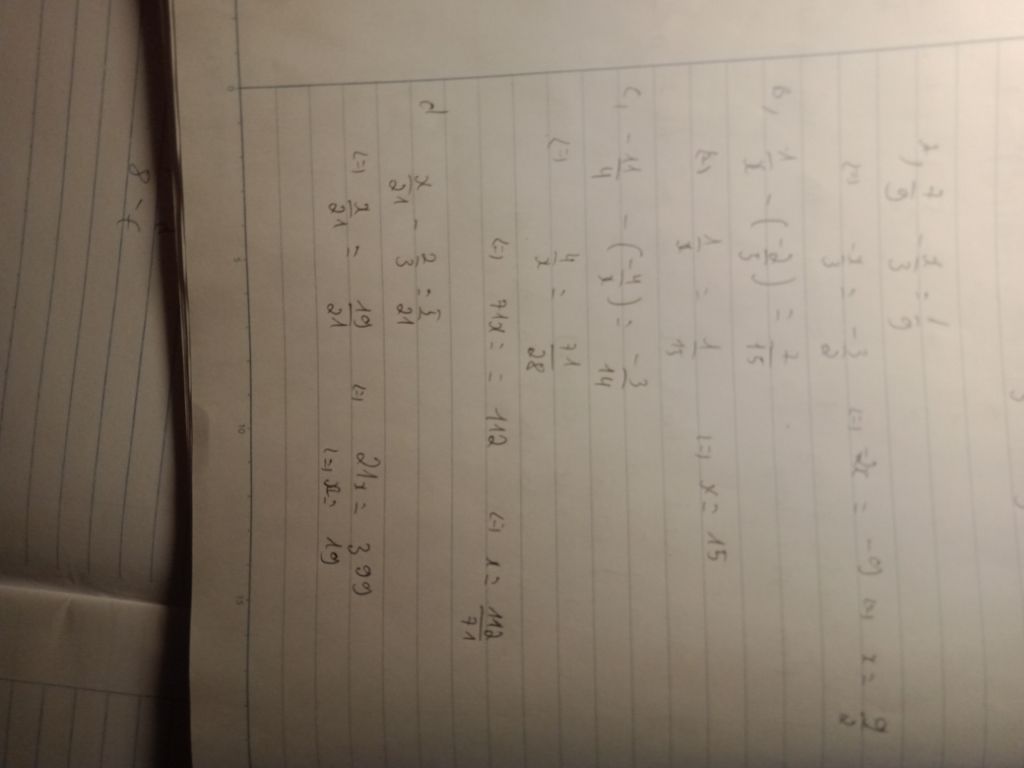 7/9 - x/3 = 1/9
(=) -x/3 = -3/2 (=) -2x = -9 (=) x = 9/2
b, 1/x - (-2/5) = 7/15
(=) 1/x = 1/15 (=) x = 15
c, -11/4 - (-4/x) = -3/14
(=) 4/x = 71/28
(=) 71x = 112 (=) x = 112/71
d x/21 - 2/3 = 5/21
(=) x/21 = 19/21 (=) 21x = 399
(=) x = 19